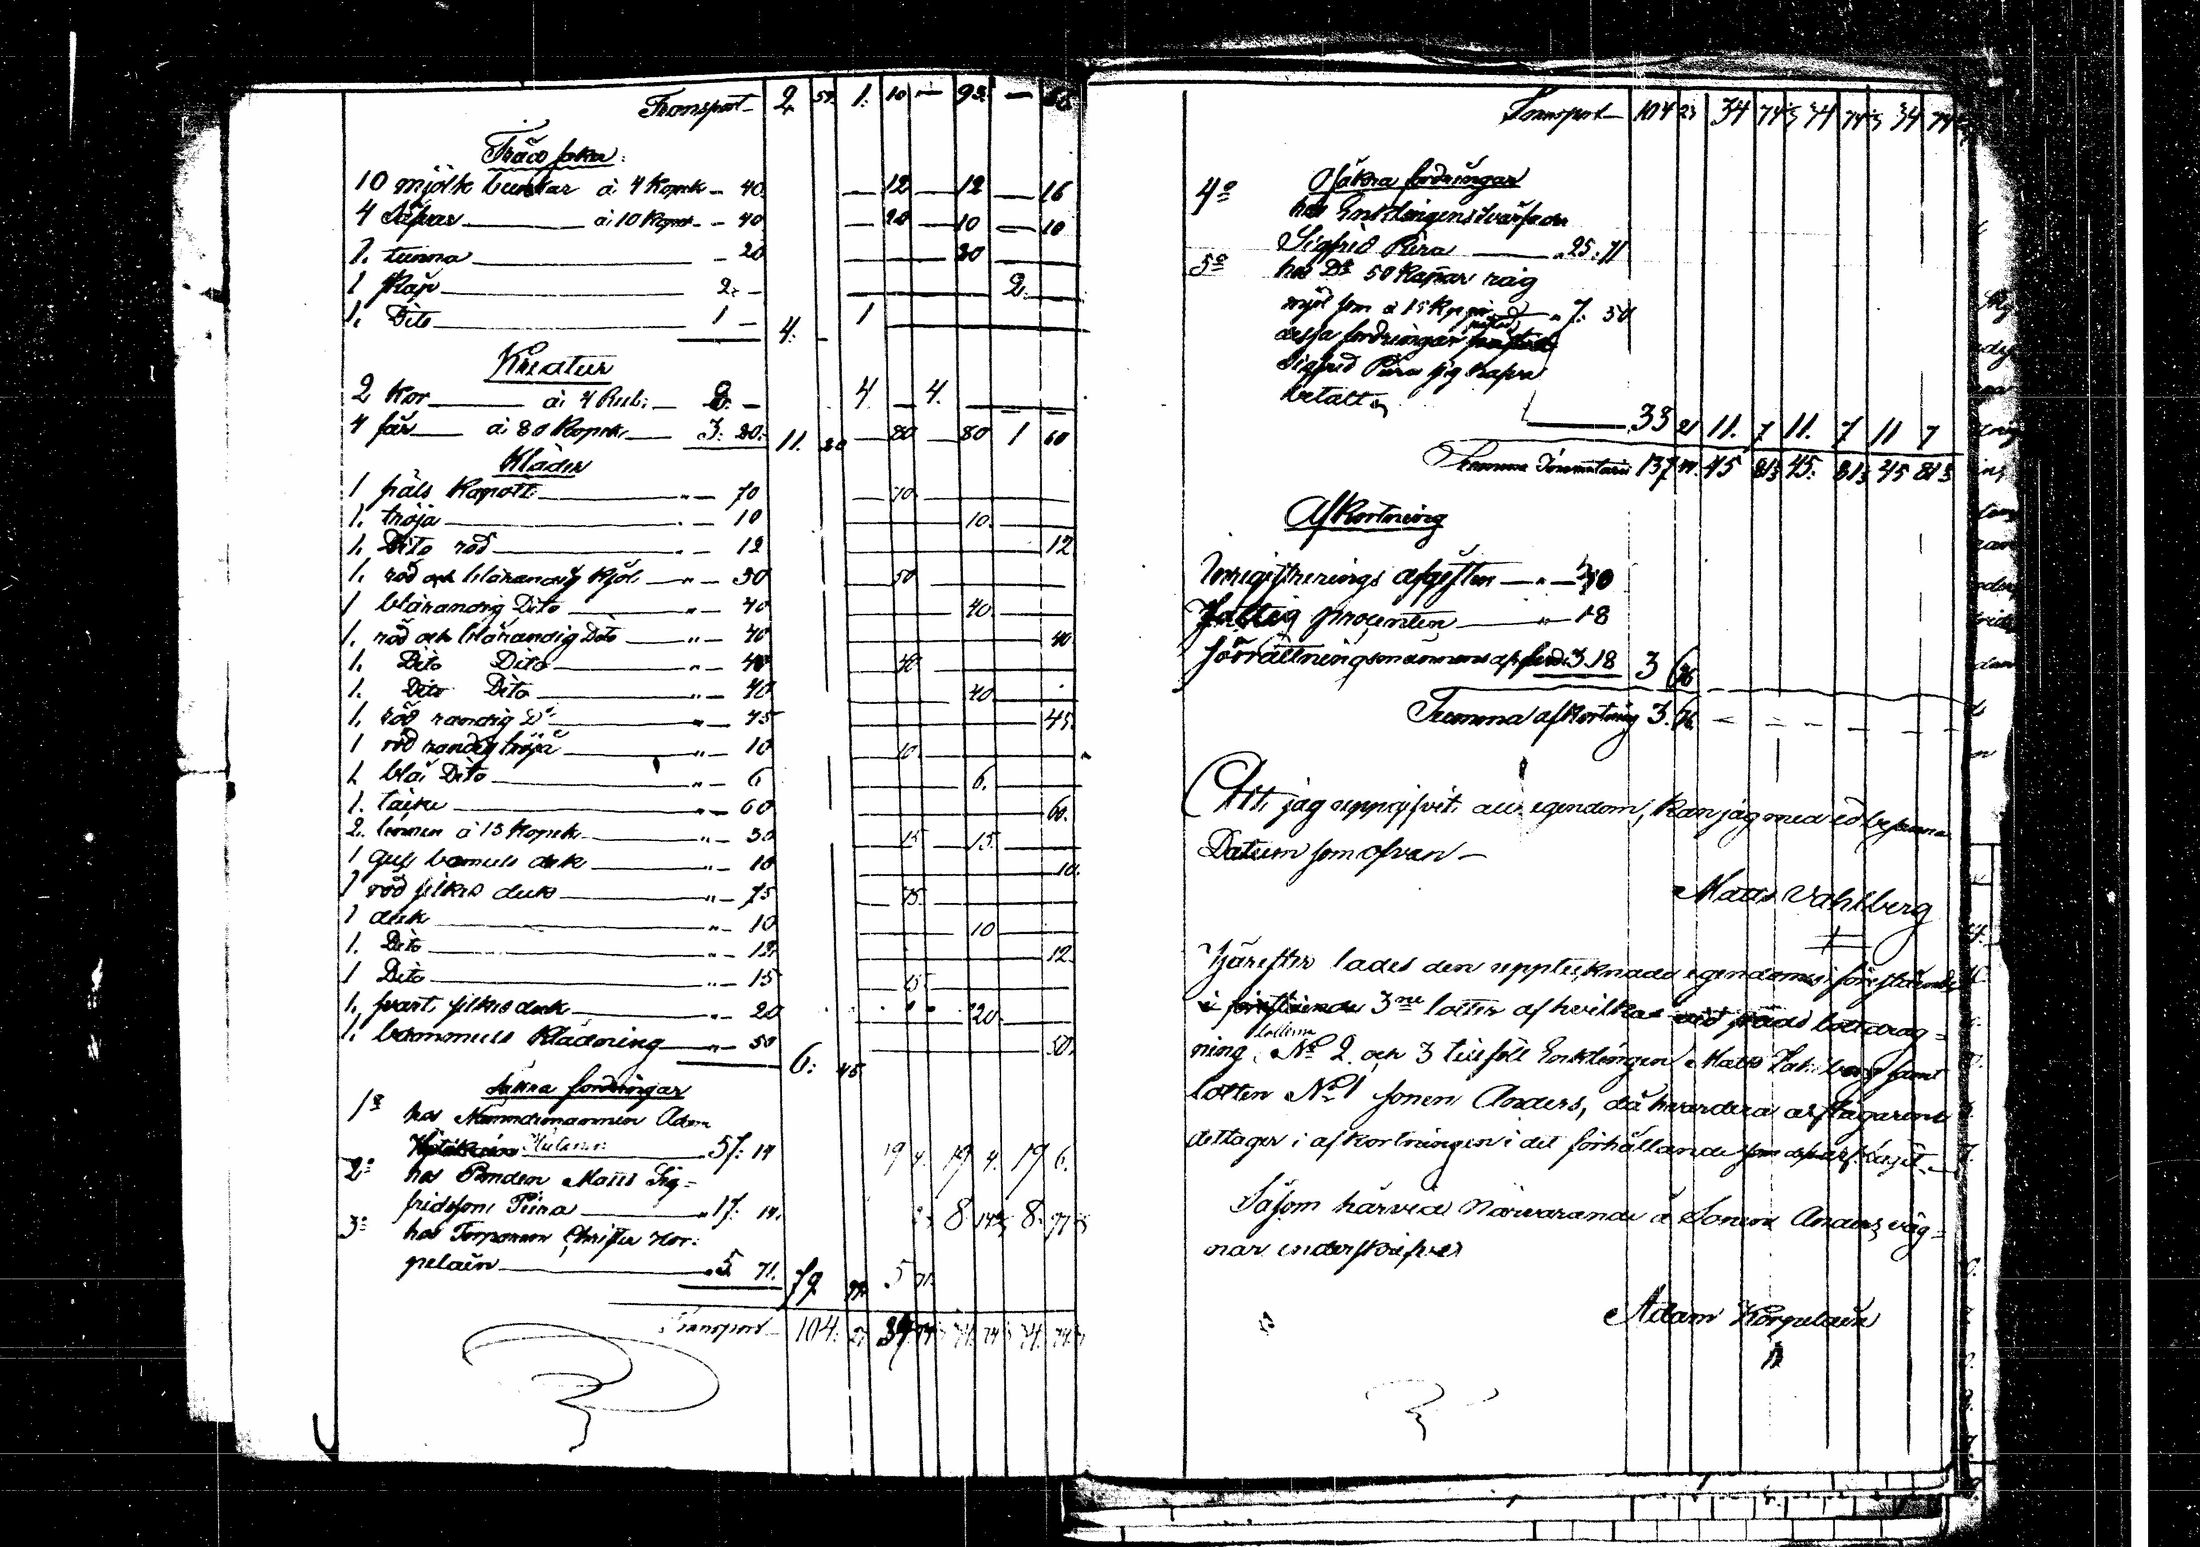 Transport 2 59. 1. 10 — 93. — 66
Träd saker.
10 mjölk bunkar à 4 Kopek — 40 — 12 — 12 — 16
4 Såfvar à 10 Kopek — 40 — 20 — 10 — 10
1. tunna — 20 20
1 skåp 2. — 2.
1. Dito 1 — 4. — 1
Kreatur
2 Kor à 4 Rub. — 8. — 4 — 4.
4 får à 80 Kopek 3. 20. 11. 20 — 80 80 1 60
Kläder
1 päls Kapott " — 70 70
1. tröja " — 10 10.
1. Dito röd " — 12 12
1. röd och blårandig Kjol " — 50 50
1 blårandig Dito " — 40 40
1. röd och blårandig Dito " — 40 40
1. Dito Dito " — 40 40
1. Dito Dito " — 40 40
1. röd randig Do " — 45 45.
1 röd randig tröja " — 10 10.
1. blå Dito " — 6 6.
1. täcke " — 60 60.
2. linnen à 15 Kopek " — 30 15 15.
1 gul bomuls duk " — 10 10.
1 röd silkes duk " — 75 75
1 duk " — 10 10
1. Dito " — 12 12
1 Dito " — 15 15
1. svart silkes duk " — 20 20
1. bommuls Klädning " — 50 6: 45 50.
Säkra fordringar
1o hos Nämndemannen Adam
57: 14 19 4. 19 4. 19 6.
2o hos Bonden Matts Sig=
fridsson Piira " 17: 14. 8 8.
3o hos Torparen Christer Kor=
pelain " 5 71. 79 99. 5 71
Transport 104. 23 34 74 34 74 34 74
Transport 104 23 34 74 34 74 34 74
4o Osäkra fordringar
hos Enklingens svärfader
Sigfrid Piira " 25: 71
5o hos Do 50 Kappar råg
mjöl som à 15 Kop gör " 7: 50
dessa fordringar påstod
Sigfrid Piira sig hafva
betalt
33 21 11. 7 11. 7 11 7
Summa Inventarii 137 44. 45 81 45. 81 45 81
Afkortning
Inregistrerings afgiften — " — 40
Fattig procenten " 18
Förrättningsmännens arfvode 3.18 3 76
Summa afkortning 3. 76
Att jag uppgifvit all egendom, kan jag med ed besanna
Datum som ofvan —
Matts Vahlberg
Härefter lades den upptecknade egendomen i föreståend
3ne lotter af hvilka lottdrag=
ning lotterne No 2 och 3 tillföll Enklingen Matts Vahlberg samt
lotten No 1 sonen Anders, då hvardera arftagarene
deltager i afkortningen i det förhållande
Såsom härvid närvarande å Sonens Anders väg=
nar underskrifver
Adam Korpelain